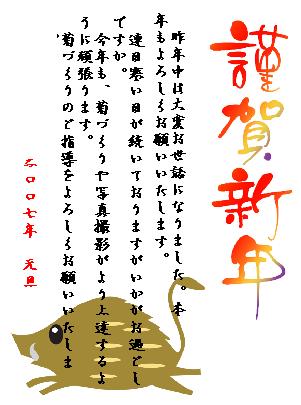 謹賀新年
昨年中は大変お世話になりました。本
年もよろしくお願いいたします。
連日寒い日が続いておりますがいかがお過ごし
ですか。
今年も、菊づくりや写真撮影がより上達するよ
うに頑張ります。
菊づくりのご指導をよろしくお願いいたしま
す。
二〇〇七年 元旦